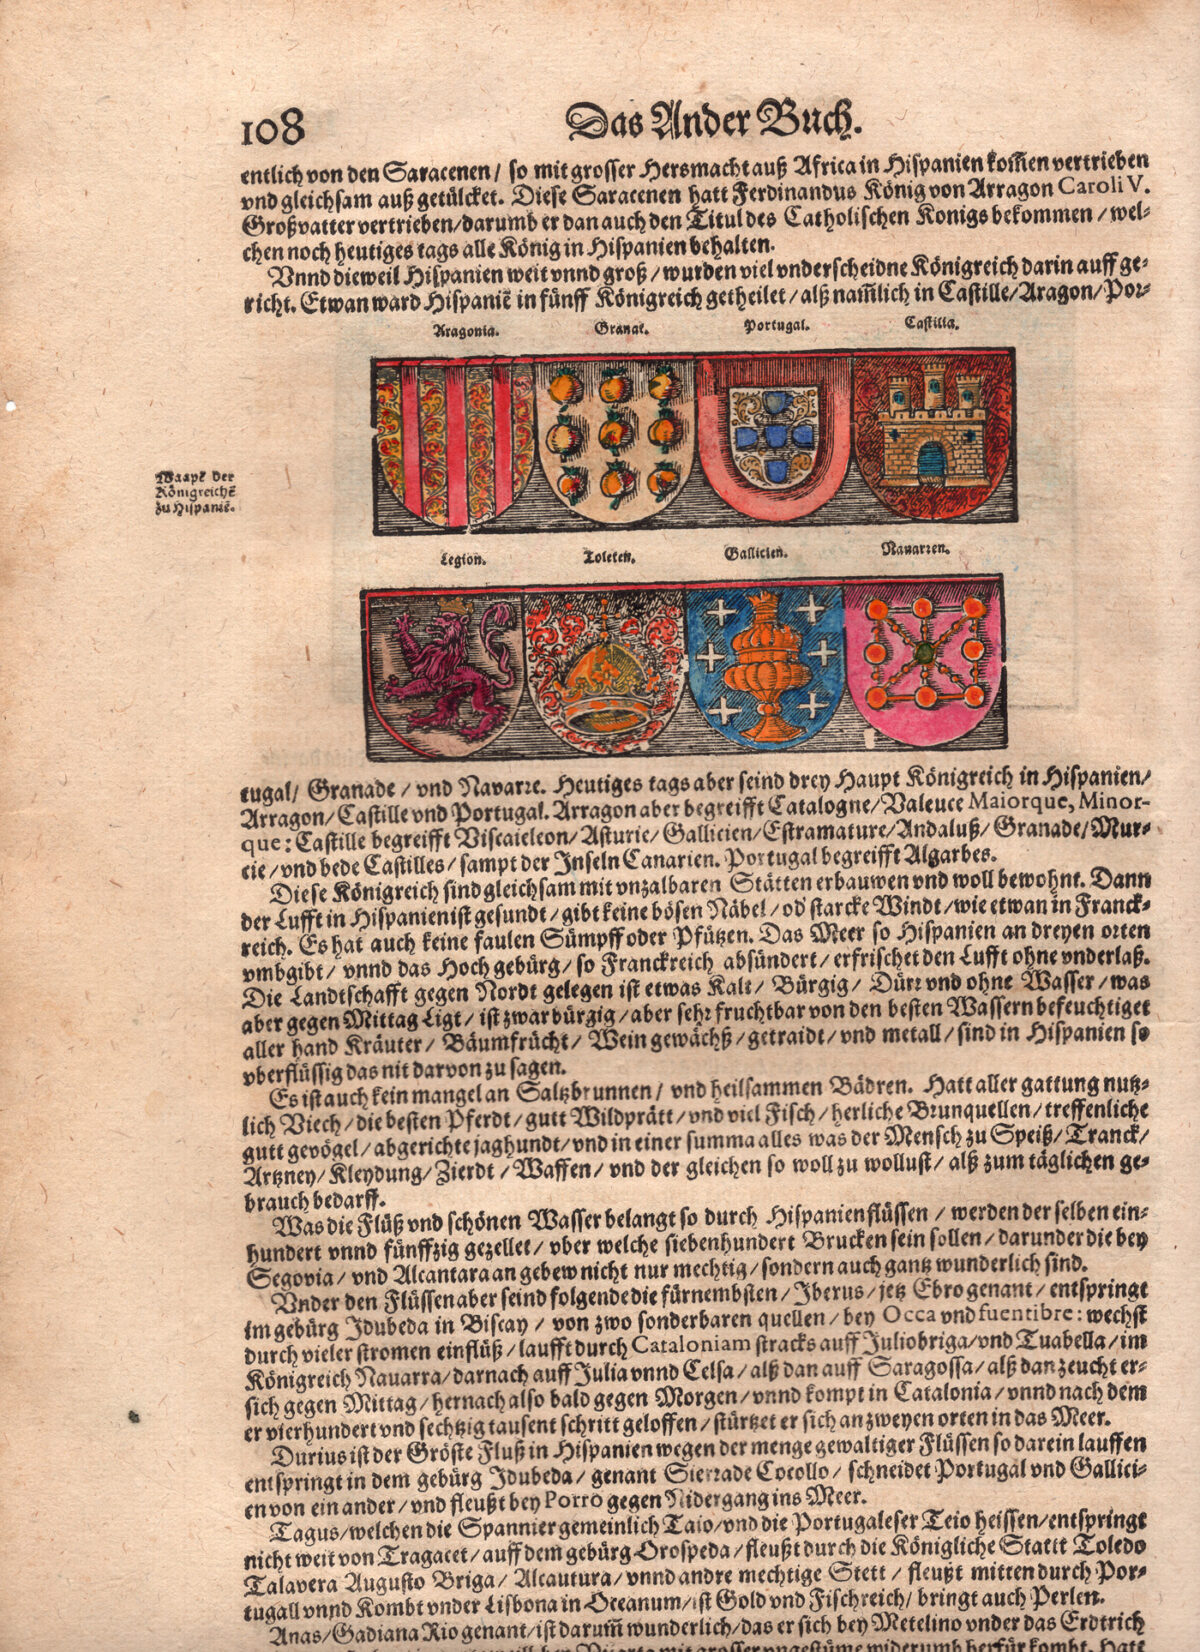 108
Das Ander Buch.
entlich von den Saracenen / so mit grosser Hersmacht auß Africa in Hispanien kom̃en vertrieben
vnd gleichsam auß getülcket. Diese Saracenen hatt Ferdinandus König von Arragon Caroli V.
Großvatter vertrieben / darumb er dan auch den Titul des Catholischen Konigs bekommen / wel-
chen noch heutiges tags alle König in Hispanien behalten.
Vnnd dieweil Hispanien weit vnnd groß / wurden viel vnderscheidne Königreich darin auff ge-
richt. Etwan ward Hispaniē in fünff Königreich getheilet / alß nam̃lich in Castille / Aragon / Por-
Aragonia. Granat. Portugal. Castilia.
Waapē der
Königreichē
zu Hispaniē.
Legion. Toleten. Gallicien. Nauarren.
tugal / Granade / vnd Navarre. Heutiges tags aber seind drey Haupt Königreich in Hispanien /
Arragon / Castille vnd Portugal. Arragon aber begreifft Catalogne / Valeuce Maiorque, Minor-
que: Castille begreifft Viscaieleon / Asturie / Gallicien / Estramature / Andaluß / Granade / Mur-
cie / vnd bede Castilles / sampt der Inseln Canarien. Portugal begreifft Algarbes.
Diese Königreich sind gleichsam mit vnzalbaren Stätten erbauwen vnd woll bewohnt. Dann
der Lufft in Hispanien ist gesundt / gibt keine bösen Näbel / od' starcke Windt / wie etwan in Franck-
reich. Es hat auch keine faulen Sümpff oder Pfützen. Das Meer so Hispanien an dreyen orten
vmbgibt / vnnd das Hoch gebürg / so Franckreich absündert / erfrischet den Lufft ohne vnderlaß.
Die Landtschafft gegen Nordt gelegen ist etwas Kalt / Bürgig / Dürr vnd ohne Wasser / was
aber gegen Mittag Ligt / ist zwar bürgig / aber sehr fruchtbar von den besten Wassern befeuchtiget
aller hand Kräuter / Bäumfrücht / Wein gewächß / getraidt / vnd metall / sind in Hispanien so
vberflüssig das nit darvon zu sagen.
Es ist auch kein mangel an Saltzbrunnen / vnd heilsammen Bädren. Hatt aller gattung nutz-
lich Viech / die besten Pferdt / gutt Wildprätt / vnd viel Fisch / herliche Brunquellen / treffenliche
gutt gevögel / abgerichte jaghundt / vnd in einer summa alles was der Mensch zu Speiß / Tranck /
Artzney / Kleydung / Zierdt / Waffen / vnd der gleichen so woll zu wollust / alß zum täglichen ge-
brauch bedarff.
Was die Flüß vnd schönen Wasser belangt so durch Hispanien flüssen / werden der selben ein-
hundert vnnd fünffzig gezellet / vber welche siebenhundert Brucken sein sollen / darunder die bey
Segovia / vnd Alcantara an gebew nicht nur mechtig / sondern auch gantz wunderlich sind.
Vnder den Flüssen aber seind folgende die fürnembsten / Iberus / jetz Ebro genant / entspringt
im gebürg Idubeda in Biscay / von zwo sonderbaren quellen / bey Occa vnd fuentibre: wechst
durch vieler stromen einflüß / laufft durch Cataloniam stracks auff Juliobriga / vnd Tuabella / im
Königreich Navarra / darnach auff Julia vnnd Celsa / alß dan auff Saragossa / alß dan zeucht er-
sich gegen Mittag / hernach also bald gegen Morgen / vnnd kompt in Catalonia / vnnd nach dem
er vierhundert vnd sechtzig tausent schritt geloffen / stürtzet er sich an zweyen orten in das Meer.
Durius ist der Gröste Fluß in Hispanien wegen der menge gewaltiger Flüssen so darein lauffen
entspringt in dem gebürg Idubeda / genant Sierrade Cocollo / schneidet Portugal vnd Gallici-
en von ein ander / vnd fleußt bey Porro gegen Nidergang ins Meer.
Tagus / welchen die Spannier gemeinlich Taio / vnd die Portugaleser Teio heissen / entspringt
nicht weit von Tragacet / auff dem gebürg Orospeda / fleußt durch die Königliche Statt Toledo
Talavera Augusto Briga / Alcautura / vnnd andre mechtige Stett / fleußt mitten durch Por-
tugall vnnd Kombt vnder Lisbona in Oceanum / ist Gold vnd Fischreich / bringt auch Perlen.
Anas / Gadiana Rio genant / ist darum̃ wunderlich / das er sich bey Metelino vnder das Erdtrich
mit grosser vngestüme widerumb herfür kombt. Hatt